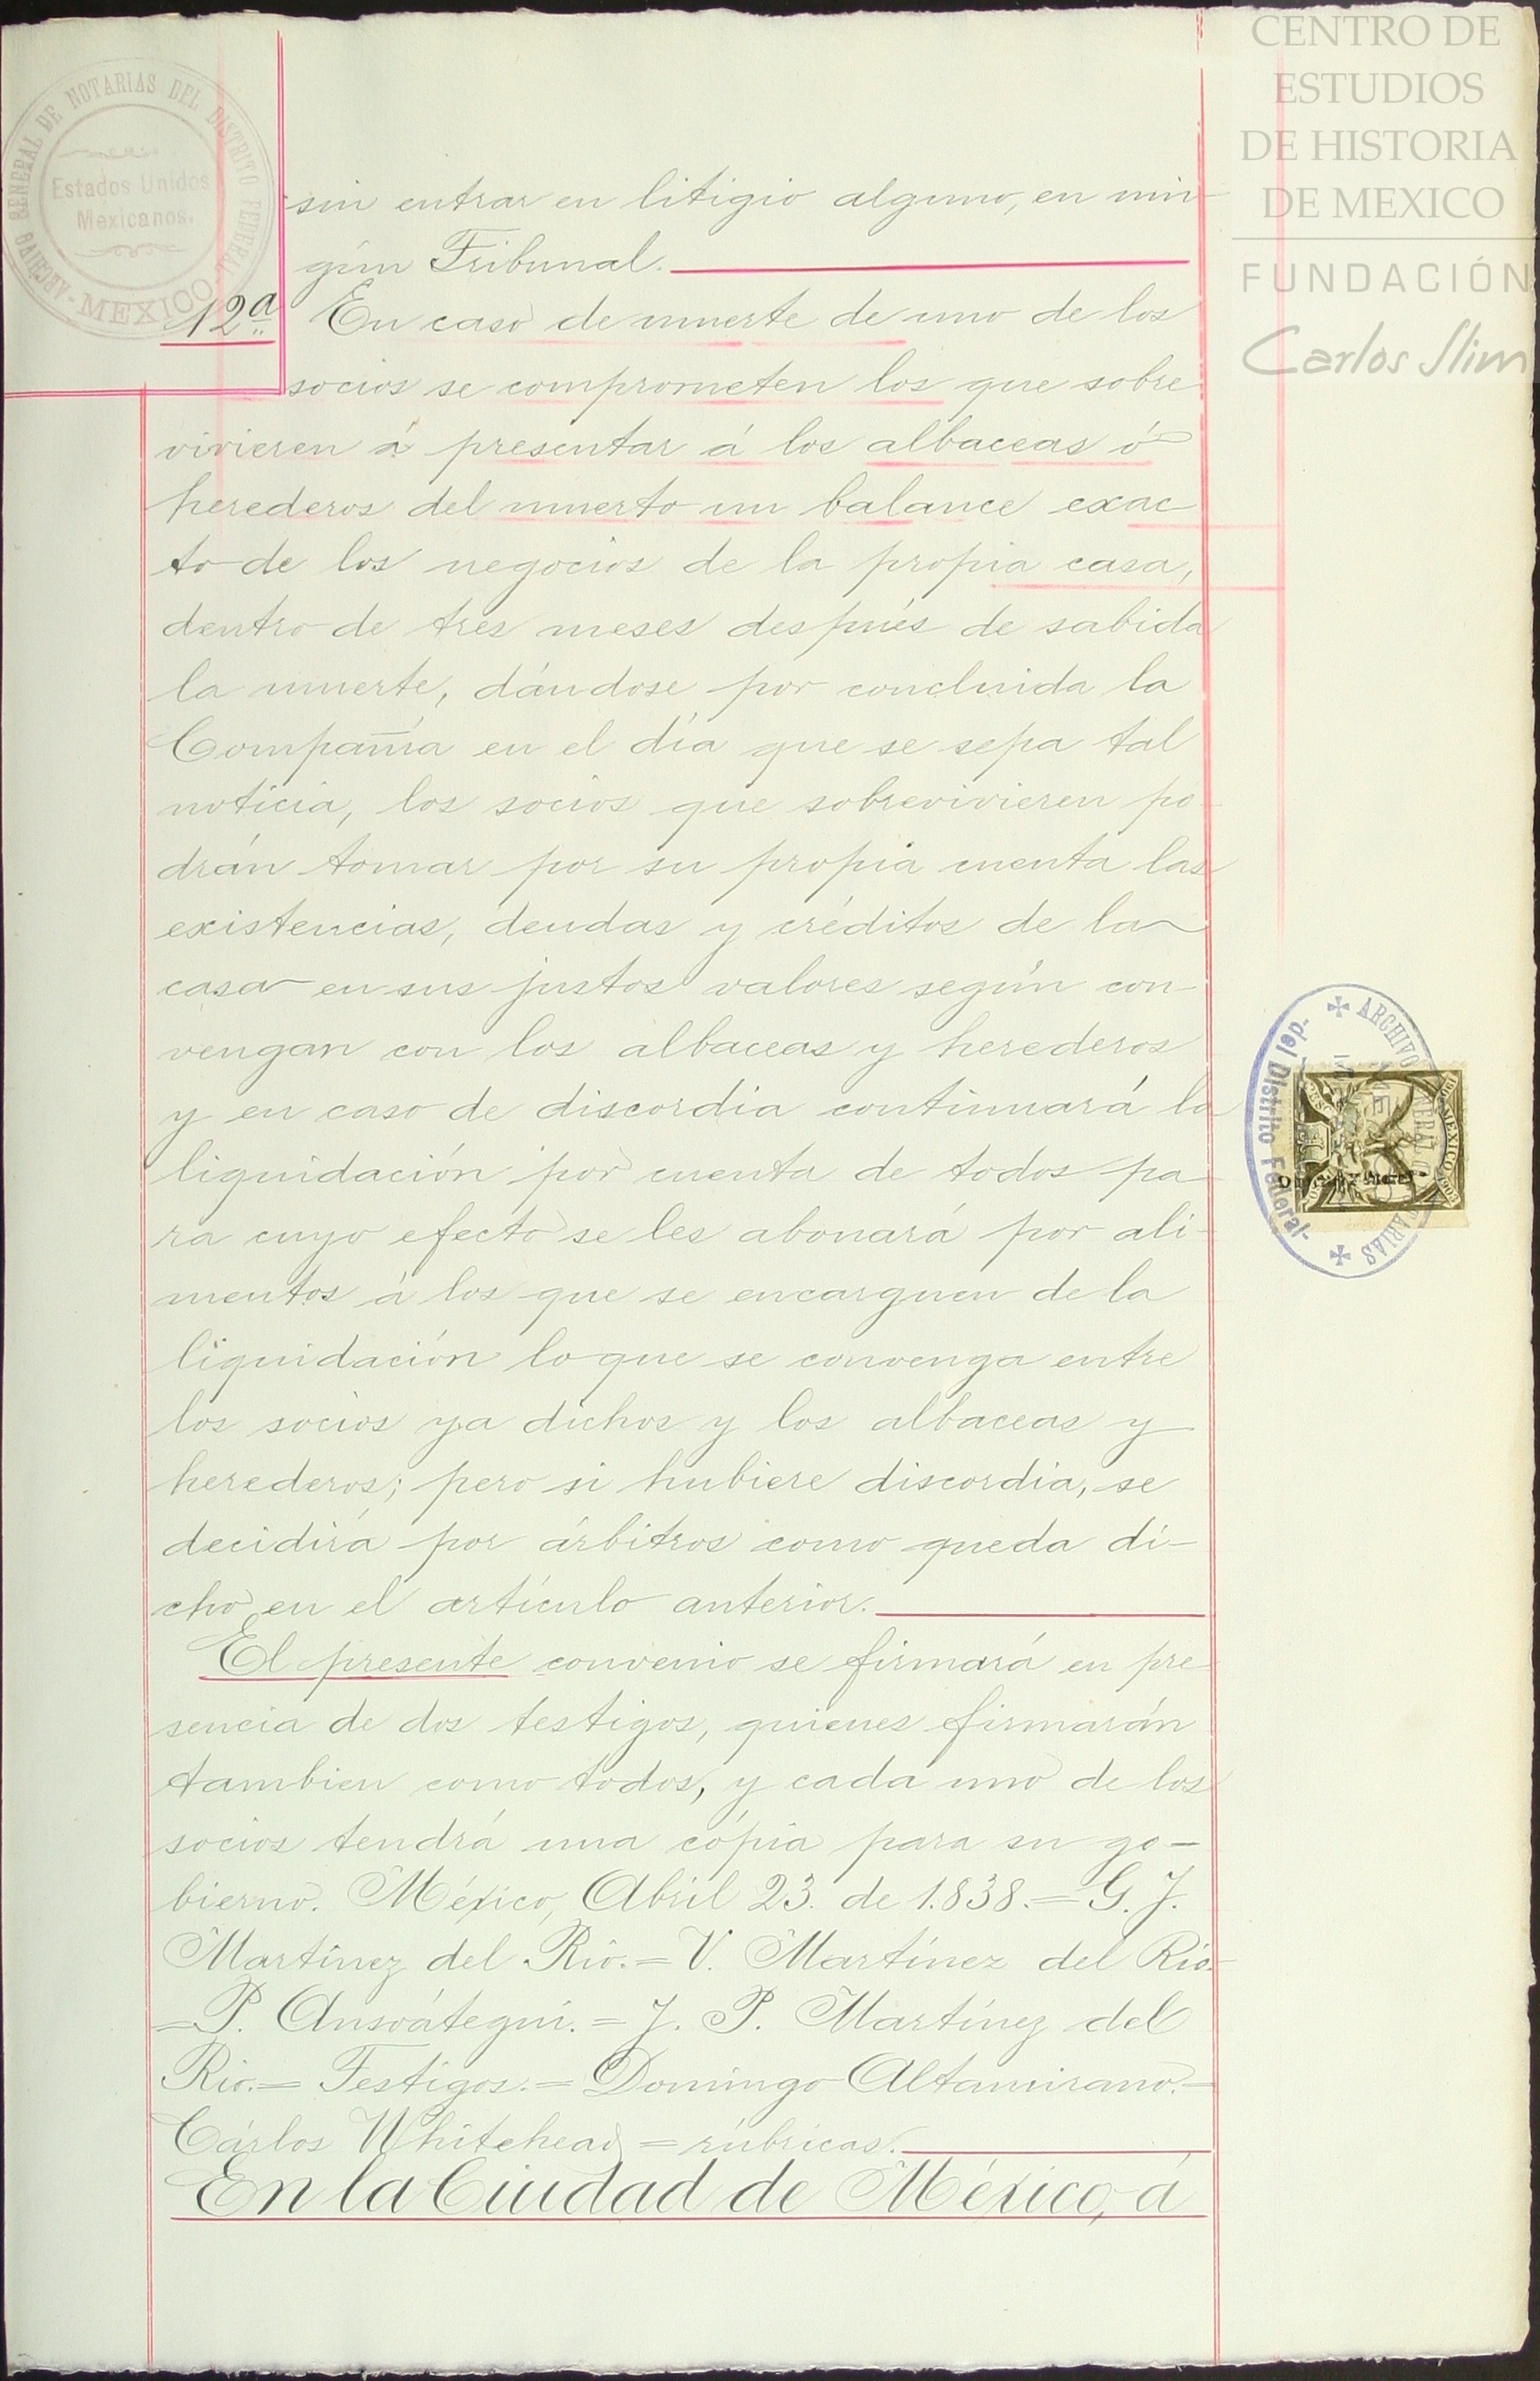 CENTRO DE
ESTUDIOS
DE HISTORIA
DE MEXICO
FUNDACIÓN
Carlos Slim
ARCHIVO GENERAL DE NOTARIAS DEL DISTRITO FEDERAL
- MEXICO -
Estados Unidos
Mexicanos.
sin entrar en litigio alguno, en nin-
gún Tribunal.
12ª En caso de muerte de uno de los
socios se comprometen los que sobre
vivieren á presentar á los albaceas ó
herederos del muerto un balance exac
to de los negocios de la propia casa,
dentro de tres meses después de sabida
la muerte, dándose por concluida la
Compañía en el día que se sepa tal
noticia, los socios que sobrevivieren po-
drán tomar por su propia cuenta las
existencias, deudas y créditos de la
casa en sus justos valores según con-
vengan con los albaceas y herederos
y en caso de discordia continuará la
liquidación por cuenta de todos pa-
ra cuyo efecto se les abonará por ali-
mentos á los que se encarguen de la
liquidación lo que se convenga entre
los socios ya dichos y los albaceas y
herederos; pero si hubiere discordia, se
decidirá por árbitros como queda di-
cho en el artículo anterior.
El presente convenio se firmará en pre-
sencia de dos testigos, quienes firmarán
tambien como todos, y cada uno de los
socios tendrá una cópia para su go-
bierno. México, Abril 23. de 1.838.= G. J.
Martínez del Río.= V. Martínez del Río.
= P. Ansoátegui.= J. P. Martínez del
Río.= Testigos.= Domingo Altamirano.=
Cárlos Whitehead = rúbricas.
En la Ciudad de México, á
ARCHIVO
NOTARIAS
-del Distrito Federal-
MEXICO